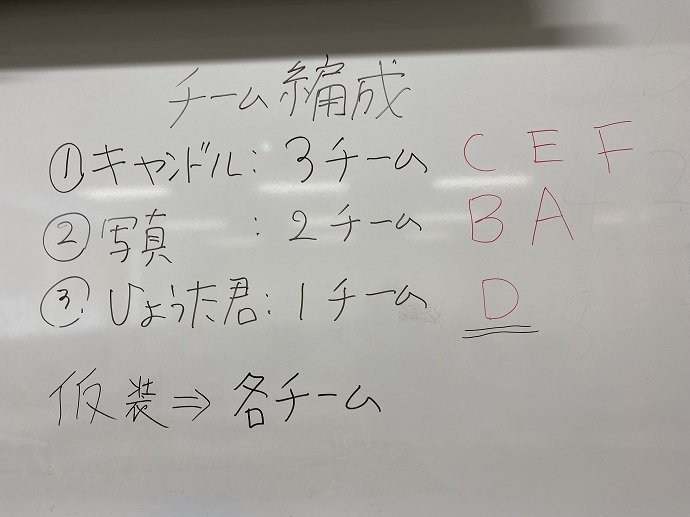 チーム編成
①キャンドル：3チーム C E F
②写真：2チーム B A
③ひょうた君：1チーム D
仮装⇒各チーム